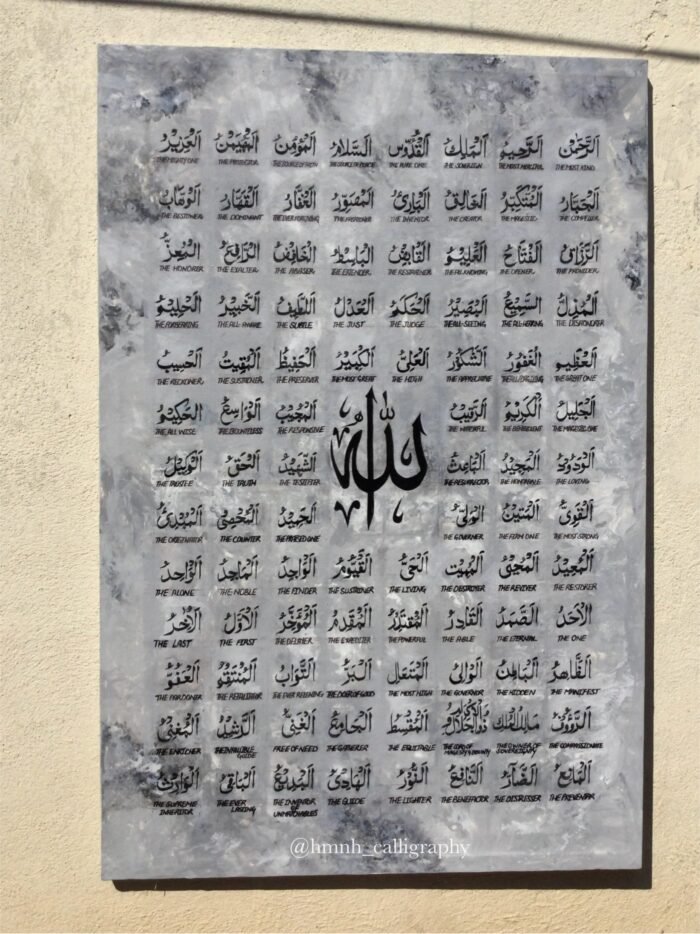 الرحمن الرحيم الملك القدوس السلام المؤمن المهيمن العزيز
THE MOST KIND THE MOST MERCIFUL THE SOVERIGN THE PURE ONE THE SOURCE OF PEACE THE SOURCE OF FAITH THE PROTECTOR THE MIGHTY ONE
الجبار المتكبر الخالق البارئ المصور الغفار القهار الوهاب
THE COMPELLER THE MAGESTIC THE CREATOR THE INVENTOR THE FASHIONER THE EVER FORGIVING THE DOMINANT THE BESTOWER
الرزاق الفتاح العليم القابض الباسط الخافض الرافع المعز
THE PROVIDER THE OPENER THE ALL KNOWING THE RESTRAINER THE EXTENDER THE ABASER THE EXALTER THE HONORER
المذل السميع البصير الحكم العدل اللطيف الخبير الحليم
THE DISHONORER THE ALL-HEARING THE ALL-SEEING THE JUDGE THE JUST THE SUBTLE THE ALL-AWARE THE FORBEARING
العظيم الغفور الشكور العلي الكبير الحفيظ المقيت الحسيب
THE GREAT ONE THE APPRECIATIVE THE HIGH THE MOST GREAT THE PRESERVER THE SUSTAINER THE RECKONER
الجليل الكريم الرقيب المجيب الواسع الحكيم
THE MAGESTIC ONE THE BENEVOLENT THE WATCHFUL THE RESPONSIVE THE BOUNTELESS THE ALL WISE
الله
الودود المجيد الباعث الشهيد الحق الوكيل
THE LOVING THE HONORABLE THE RESURRECTOR THE TESTIFIER THE TRUTH THE TRUSTEE
القوي المتين الولي الحميد المحصي المبدئ
THE MOST STRONG THE FIRM ONE THE GOVERNER THE PRAISED ONE THE COUNTER THE ORIGINATOR
المعيد المحيي المميت الحي القيوم الواجد الماجد الواحد
THE RESTORER THE REVIVER THE DESTROYER THE LIVING THE SUSTAINER THE FINDER THE NOBLE THE ALONE
الأحد الصمد القادر المقتدر المقدم المؤخر الأول الآخر
THE ONE THE ETERNAL THE ABLE THE POWERFUL THE EXPEDITER THE DELAYER THE FIRST THE LAST
الظاهر الباطن الوالي المتعال البر التواب المنتقم العفو
THE MANIFEST THE HIDDEN THE GOVERNOR THE MOST HIGH THE DOER OF GOOD THE EVER RELENTING THE RETALIATOR THE PARDONER
الرؤوف مالك الملك ذو الجلال والإكرام المقسط الجامع الغني الرشيد المغني
THE COMPASSIONATE THE OWNER OF SOVEREIGNTY THE LORD OF MAGESTY & BOUNTY THE EQUITABLE THE GATHERER FREE OF NEED THE INFALLIBLE GUIDE THE ENRICHER
المانع الضار النافع النور الهادي البديع الباقي الوارث
THE PREVENTER THE DISTRESSER THE BENEFACTOR THE LIGHTER THE GUIDE THE INVENTOR OF UNMATCHABLES THE EVER LASING THE SUPREME INHERITOR
@hmnh_calligraphy